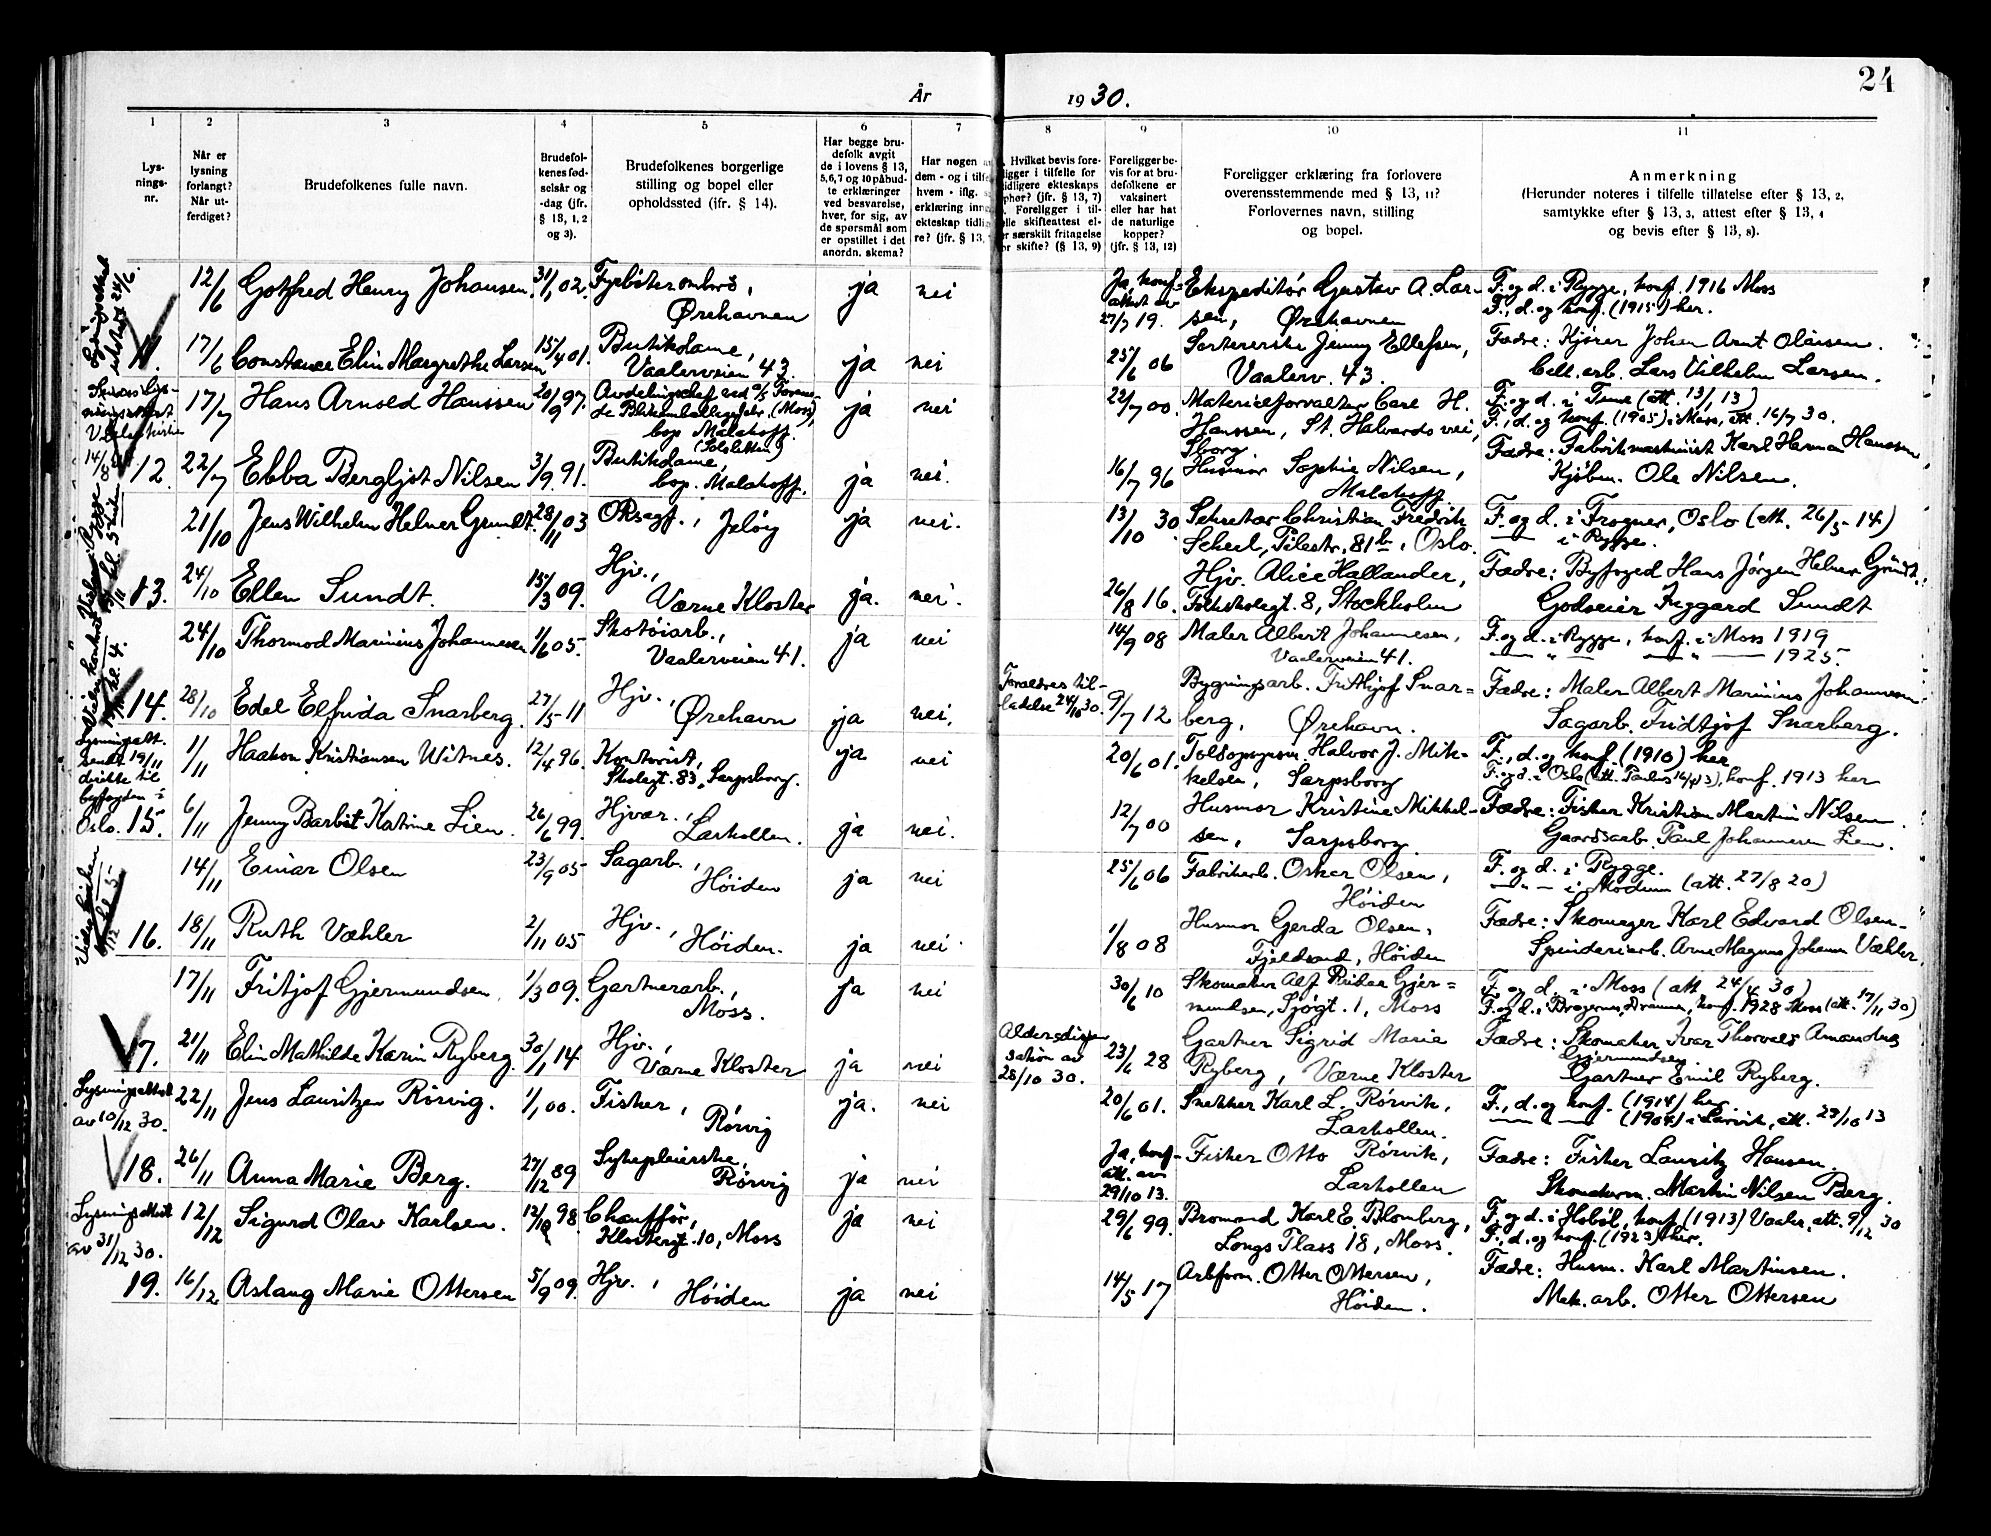 24
År 1930.
1 2 3 4 5 6 7 8 9 10 11
Lys-
nings-
nr.
Når er
lysning
forlangt?
Når ut-
ferdiget?
Brudefolkenes fulle navn.
Brudefol-
kenes fød-
selsår og
-dag (jfr.
§ 13, 1, 2
og 3).
Brudefolkenes borgerlige
stilling og bopel eller
opholdssted (jfr. § 14).
Har begge bru-
defolk avgit
de i lovens § 13,
5,6,7 og 10 påbud-
te erklæringer
ved besvarelse,
hver, for sig, av
de spørsmål som
er opstillet i det
anordn. skema?
Har nogen
dem - og i tilf
hvem - iflg.
erklæring inn
ekteskap tidli
re? (jfr. § 13,
Hvilket bevis fore-
ligger i tilfelle for
tidligere ekteskaps
ophør? (jfr. § 13, 7)
Foreligger i til-
felle skifteattest el-
er særskilt fritagelse
or skifte? (§ 13, 9)
Foreligger be-
vis for at bru-
defolkene er
vaksinert
eller har hat
de naturlige
kopper?
(jfr. § 13, 12)
Foreligger erklæring fra forlovere
overensstemmende med § 13, 11?
Forlovernes navn, stilling
og bopel.
Anmerkning
(Herunder noteres i tilfelle tillatelse efter § 13, 2,
samtykke efter § 13, 3, attest efter § 13, 4
og bevis efter § 13, 8).
12/6 Gotfred Henry Johansen. 31/1 02. Fyrbøter ombord, Ørehavnen ja nei Ja, konf- attest av 27/7 19. Ekspeditør Gustav A. Lar- sen, Ørehavnen F. og d. i Rygge, konf. 1916 Moss
F., d. og konf. (1915) her.
11. 17/6 Constance Elin Margrethe Larsen 15/4 01. Butikdame, Vaalerveien 43. ja nei 25/6 06 Sortererske Jenny Ellefsen, Vaalerv. 43. Fædre: Kjører Johan Arnt Olausen.
Cell. arb. Lars Vilhelm Larsen.
17/7 Hans Arnold Hanssen 20/9 97. Avdelingschef ved a/s Foren- de Blikemballagefabr. (Moss), bop. Malakoff. (Solsletten) ja nei 22/7 00. Materialforvalter Carl H. Hanssen, St. Halvards vei, Sborg F. og d. i Tune (att. 13/1 13)
F., d. og konf. (1905) i Moss, att. 16/7 30.
12. 22/7 Ebba Bergljot Nilsen 3/9. 91. Butikdame, bop. Malakoff. ja nei. 16/7 96 Husmor Sophie Nilsen, Malakoff Fædre: Fabrikmaskinist Karl Herman Hanssen,
Kjøbm. Ole Nilsen.
21/10 Jens Wilhelm Helner Grundt. 28/11 03 O.R.sagf., Jeløy ja nei. 13/10 30 Sekretær Christian Fredrik Scheel, Pilestr. 81 b, Oslo. F. og d. i Frogner, Oslo (att. 26/5-14)
— " — i Rygge.
13. 24/10 Ellen Sundt. 15/3 09. Hjv., Værne Kloster ja. nei. 26/8 16. Hjv. Alice Hallander, Folkskolegt. 8, Stockholm Fædre: Byfoged Hans Jørgen Helner Grundt.
Godseier Inggard Sundt
24/10 Thormod Marinius Johannesen 1/6 05. Skotøiarb., Vaalerveien 41. ja nei 14/9 08 Maler Albert Johannesen, Vaalerveien 41. F. og d. i Rygge, konf. i Moss 1919
— " — — " — 1925.
14. 28/10 Edel Elfrida Snarberg. 27/5-11 Hjv., Ørehavn ja nei. Foreldres til- ladelse 24/10 30. 9/7 12 Bygningsarb. Frithjof Snar- berg, Ørehavn. Fædre: Maler Albert Marinius Johannesen
Sagarb. Fridtjof Snarberg.
1/11 Haakon Kristiansen Witnes. 12/4 96. Kontorist, Skolegt. 83, Sarpsborg. ja nei 20/6 01. Toldopsynsm. Halvor J. Mik- kelsen, Sarpsborg F., d. og konf. (1910) her
F. og d. i Oslo (att. Paulus 16/4 13), konf. 1913 her
15. 6/11 Jenny Barbit Katrine Lien. 26/6 99. Hjvær., Larkollen. ja nei. 12/7 00 Husmor Kristine Mikkel- sen, Sarpsborg. Fædre: Fisker Kristian Martin Nilsen.
Gaardsarb. Paul Johannesen Lien.
14/11 Einar Olsen 23/9 05 Sagarb., Høiden ja nei 25/6 06 Fabrikarb. Oskar Olsen, Høiden F. og d. i Rygge.
— " — i Modum (att. 27/8 20)
16. 18/11 Ruth Væhler 2/11 05 Hjv., Høiden. ja nei. 1/8 08 Husmor Gerda Olsen, Fjeldsand, Høiden Fædre: Skomager Karl Edvard Olsen-
Spinderiarb. Arne Magnus Johann Væhler
17/11 Fritjof Gjermundsen 1/3 09. Gartnerarb., Moss. ja nei 30/6 10 Skomaker Alf Rikar Gjer= mundsen, Sjøgt. 1, Moss F. og d. i Moss (att 24/4 30)
F. og d. i Bragernes, Drammen, konf. 1928 Moss (att. 17/11 30)
17. 21/11 Elin Mathilde Karin Ryberg. 30/1 14. Hjv., Værne Kloster ja nei Aldersdispen sation av 28/10 30. 23/6 28 Gartner Sigrid Marie Ryberg, Værne Kloster Fædre: Skomaker Ivar Thorvald Amandus
Gjermundsen.
Gartner Emil Ryberg.
Lysningsattest av 10/12 30. 22/11 Jens Lauritzen Rørvig. 1/1 00. Fisker, Rørvig ja. nei 20/6 01. Snekker Karl L. Rørvik, Larkollen. F., d. og konf. (1914) her
— " — (1904) i Larvik, att. 29/10 13
18. 26/11 Anna Marie Berg. 27/12 89 Sykepleierske, Rørvig ja nei Ja, konf- att. av 29/10 13. Fisker Otto Rørvik, Larkollen Fædre: Fisker Lauritz Hansen.
Skomakerm. Martin Nilsen Berg.
Lysningsattest av 31/12 30. 12/12 Sigurd Olav Karlsen. 12/10 98 Chauffør, Klostergt. 10, Moss ja nei 29/6 99. Bromand Karl E. Blomberg, Longs Plass 18, Moss. F. og d. i Hobøl, konf. (1913) Vaaler, att. 9/12 30
F., d. og konf. (1923) her.
19. 16/12 Aslaug Marie Ottersen 5/9 09. Hjv., Høiden ja nei 14/5 17 Arbform. Otter Ottersen, Høiden. Fædre: Husm. Karl Martinsen.
Mek. arb. Otter Ottersen